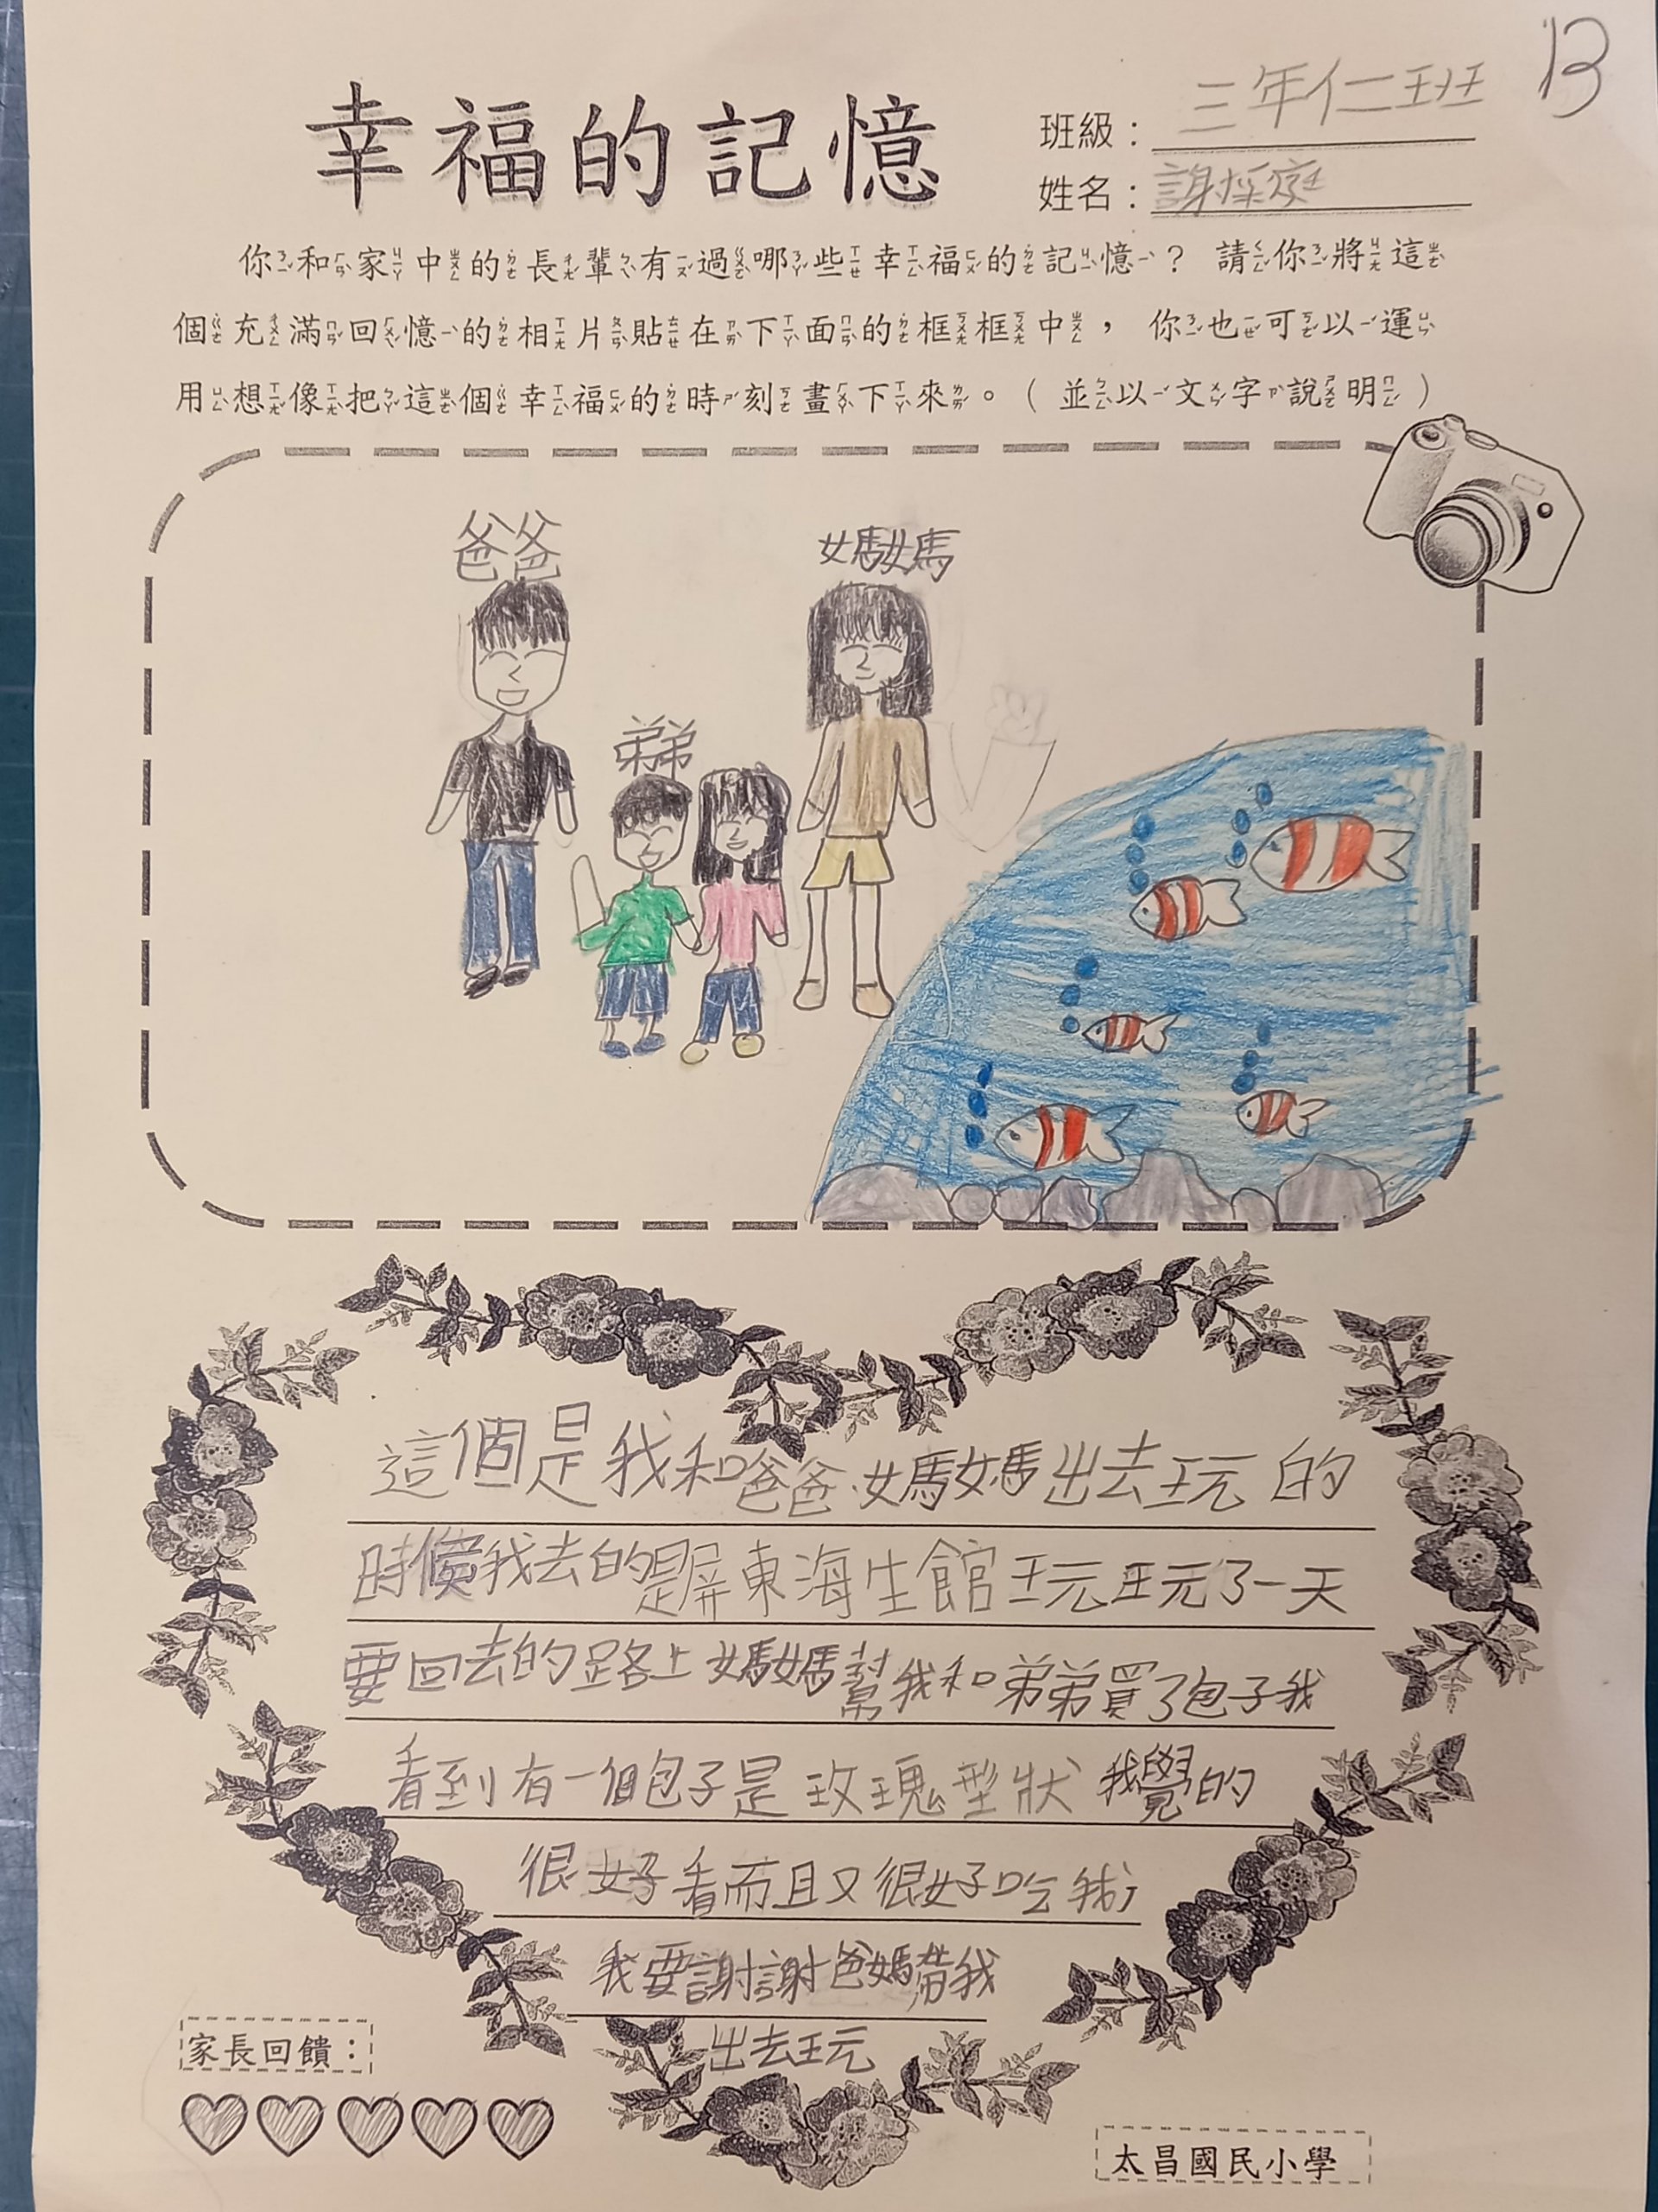 13
幸福的記憶
班級：三年仁班
姓名：謝採庭
你和家中的長輩有過哪些幸福的記憶？請你將這
個充滿回憶的相片貼在下面的框框中，你也可以運
用想像把這個幸福的時刻畫下來。（並以文字說明）
爸爸
媽媽
弟弟
這個是我和爸爸媽媽出去玩的
時候我去的是屏東海生館玩玩了一天
要回去的路上媽媽幫我和弟弟買了包子我
看到有一個包子是玫瑰型狀我覺的
很好看而且又很好吃我
我要謝謝爸媽帶我
出去玩
家長回饋：
太昌國民小學